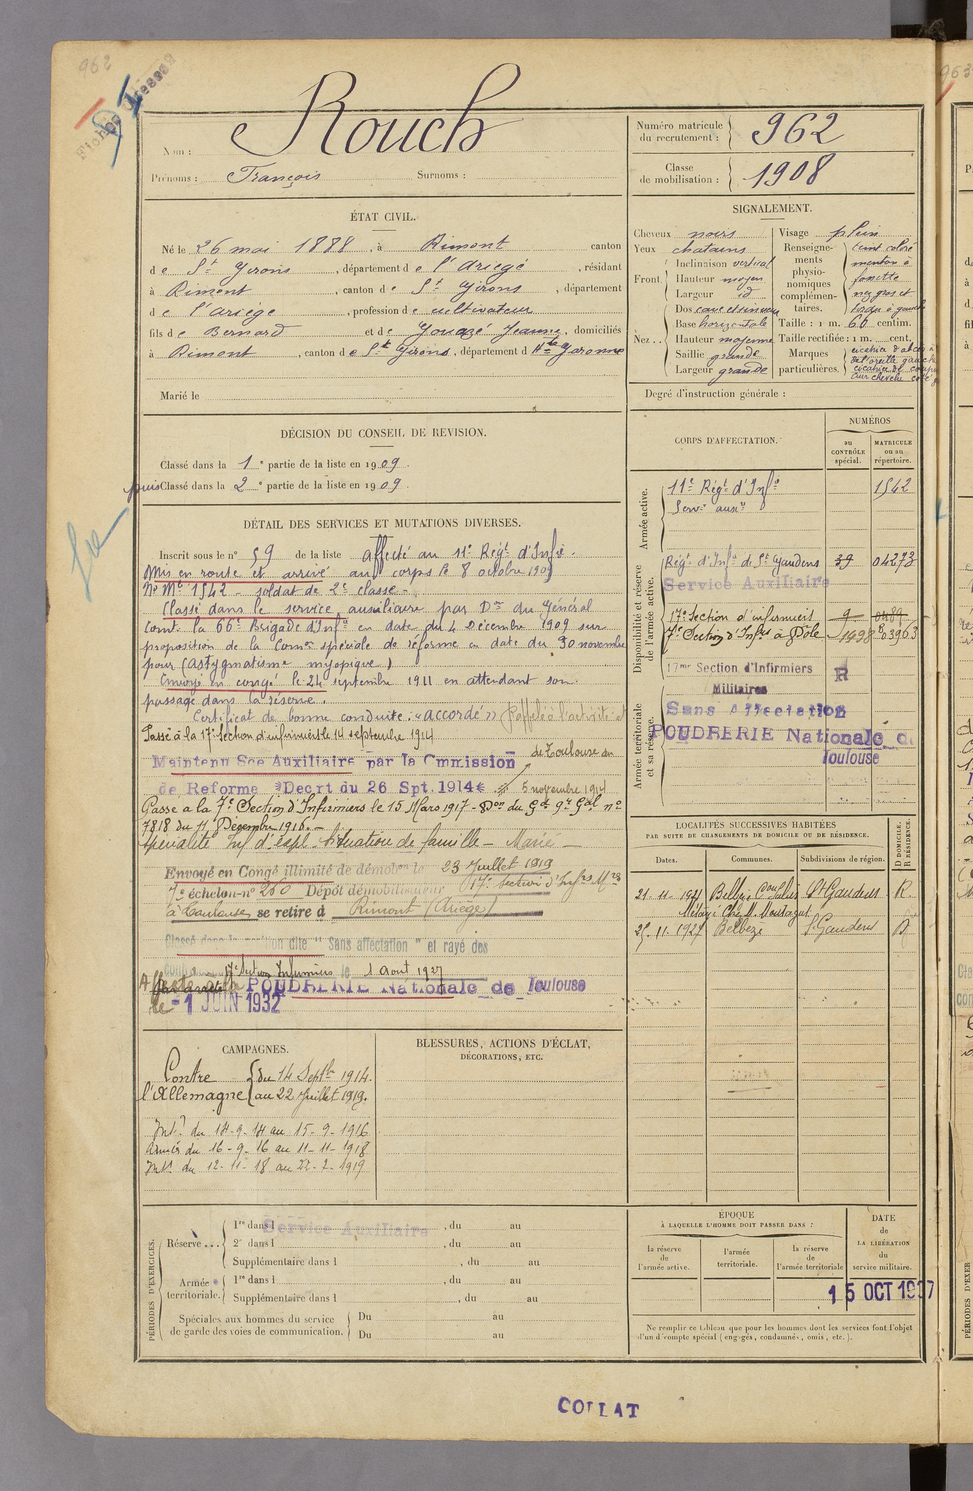 962
Fiches Dressées
Nom : Rouch
Prénoms : François Surnoms :
Numéro matricule du recrutement : 962
Classe de mobilisation : 1908
ÉTAT CIVIL.
Né le 26 mai 1888, à Rimont canton
de St Girons, département de l'Ariège, résidant
à Rimont, canton de St Girons, département
de l'ariège, profession de cultivateur
fils de Bernard et de Jeanne, domiciliés
à Rimont, canton de St Girons, département d Hte Garonne
Marié le
SIGNALEMENT.
Cheveux noirs
Yeux chatains
Front. Inclinaison vertical
Hauteur moyen
Largeur id
Nez .. Dos cave et sinueux
Base horizontale
Hauteur moyenne
Saillie grande
Largeur grande
Visage plein
Renseignements physionomiques complémentaires.
teint coloré
menton à
fossette
nez gros et
tordu à gauche
Taille : 1 m. 60 centim.
Taille rectifiée : 1 m. cent.
Marques particulières.
Degré d'instruction générale :
DÉCISION DU CONSEIL DE REVISION.
Classé dans la 1e partie de la liste en 1909.
puis Classé dans la 2e partie de la liste en 1909.
DÉTAIL DES SERVICES ET MUTATIONS DIVERSES.
Inscrit sous le n° 59 de la liste affecté au 11e Régt d'Infie
Mis en route et arrivé au corps le 8 octobre 1909
No Me 1542 - soldat de 2e classe -
Classé dans le service auxiliaire par Don du Général
Comt la 66e Brigade d'Infie en date du 4 Décembre 1909 sur
proposition de la Comon spéciale de réforme en date du 30 novembre
pour (Astygmatisme myopique)
Envoyé en congé le 24 septembre 1911 en attendant son
passage dans la réserve.
Certificat de bonne conduite "accordé" Rappelé à l'activité et
Passé à la 17e Section d'infirmiers le 14 septembre 1914
Maintenu Sce Auxiliaire par la Cmmission de Toulouse du
de Reforme *Decrt du 26 Spt. 1914* 5 novembre 1914
Passé à la 7e Section d'Infirmiers le 15 Mars 1917 - Don du Gd Qr Gal no
7818 du 11 Décembre 1916. -
Spécialité Inf d'expl - Situation de famille - Marié -
Envoyé en Congé illimité de démobon le 23 Juillet 1919
7e échelon no 260 Dépôt démobilisateur 17e Section d'Infrs Mres
à Toulouse se retire à Rimont (Ariège)
Classé dans la position dite "Sans affectation" et rayé des
17e Section Infirmiers le 1 Aout 1927
Affecté à la POUDRERIE Nationale de Toulouse
le -1 JUIN 1932
CORPS D'AFFECTATION.
NUMÉROS
au CONTRÔLE spécial.
MATRICULE ou au répertoire.
Armée active.
11e Régt d'Infie 1542
Serv. auxre
Disponibilité et réserve de l'armée active.
Régt d'Infie de St Gaudens 39 04273
Service Auxiliaire
17e Section d'infirmiers 9 0489
7e Section d'Infrs à Dôle 1498 03963
17me Section d'Infirmiers Militaires R
Armée territoriale et sa réserve.
Sans Affectation
POUDRERIE Nationale d. Toulouse
LOCALITÉS SUCCESSIVES HABITÉES
PAR SUITE DE CHANGEMENTS DE DOMICILE OU DE RÉSIDENCE.
Dates. Communes. Subdivisions de région. D DOMICILE. R RÉSIDENCE.
21-11-1921 Belbèze St Gaudens R.
Métayer Chez M. Montagut
25.11.1927 Belbèze St Gaudens
CAMPAGNES.
Contre l'Allemagne { du 14 Septbre 1914.
au 22 Juillet 1919.
Intr du 14-9-14 au 15-9-1916
Armées du 16-9-16 au 11-11-1918
Intr du 12-11-18 au 22-7-1919
BLESSURES, ACTIONS D'ÉCLAT,
DÉCORATIONS, ETC.
PÉRIODES D'EXERCICES.
Réserve... 1re dans l Service Auxiliaire, du au
2e dans l , du au
Supplémentaire dans l , du au
Armée territoriale. 1re dans l , du au
Supplémentaire dans l , du au
Spéciales aux hommes du service de garde des voies de communication. Du au
Du au
ÉPOQUE
À LAQUELLE L'HOMME DOIT PASSER DANS :
la réserve de l'armée active.
l'armée territoriale.
la réserve de l'armée territoriale
DATE de LA LIBÉRATION du service militaire.
15 OCT 1937
Ne remplir ce tableau que pour les hommes dont les services font l'objet
d'un décompte spécial (engagés, condamnés, omis, etc.).
COLLAT
963
PÉRIODES D'EXER